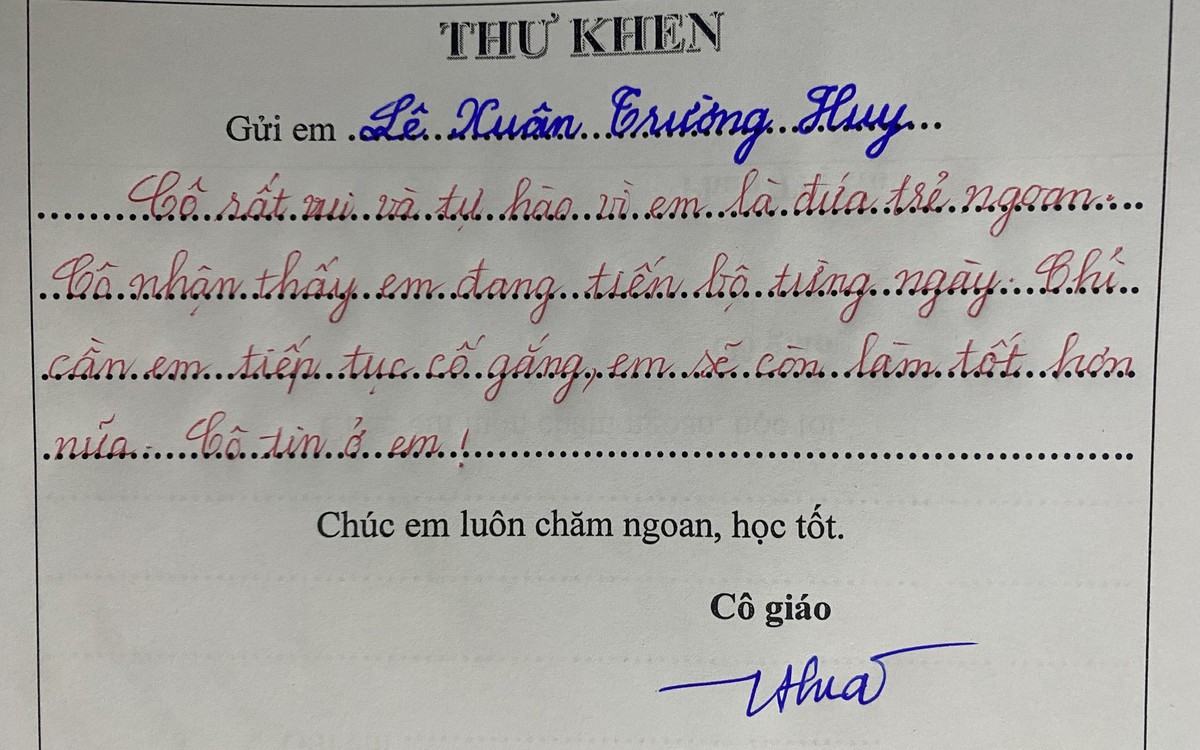 THƯ KHEN
Gửi em Lê Xuân Trường Huy
Cô rất vui và tự hào vì em là đứa trẻ ngoan.
Cô nhận thấy em đang tiến bộ từng ngày. Chỉ
cần em tiếp tục cố gắng, em sẽ còn làm tốt hơn
nữa. Cô tin ở em!
Chúc em luôn chăm ngoan, học tốt.
Cô giáo